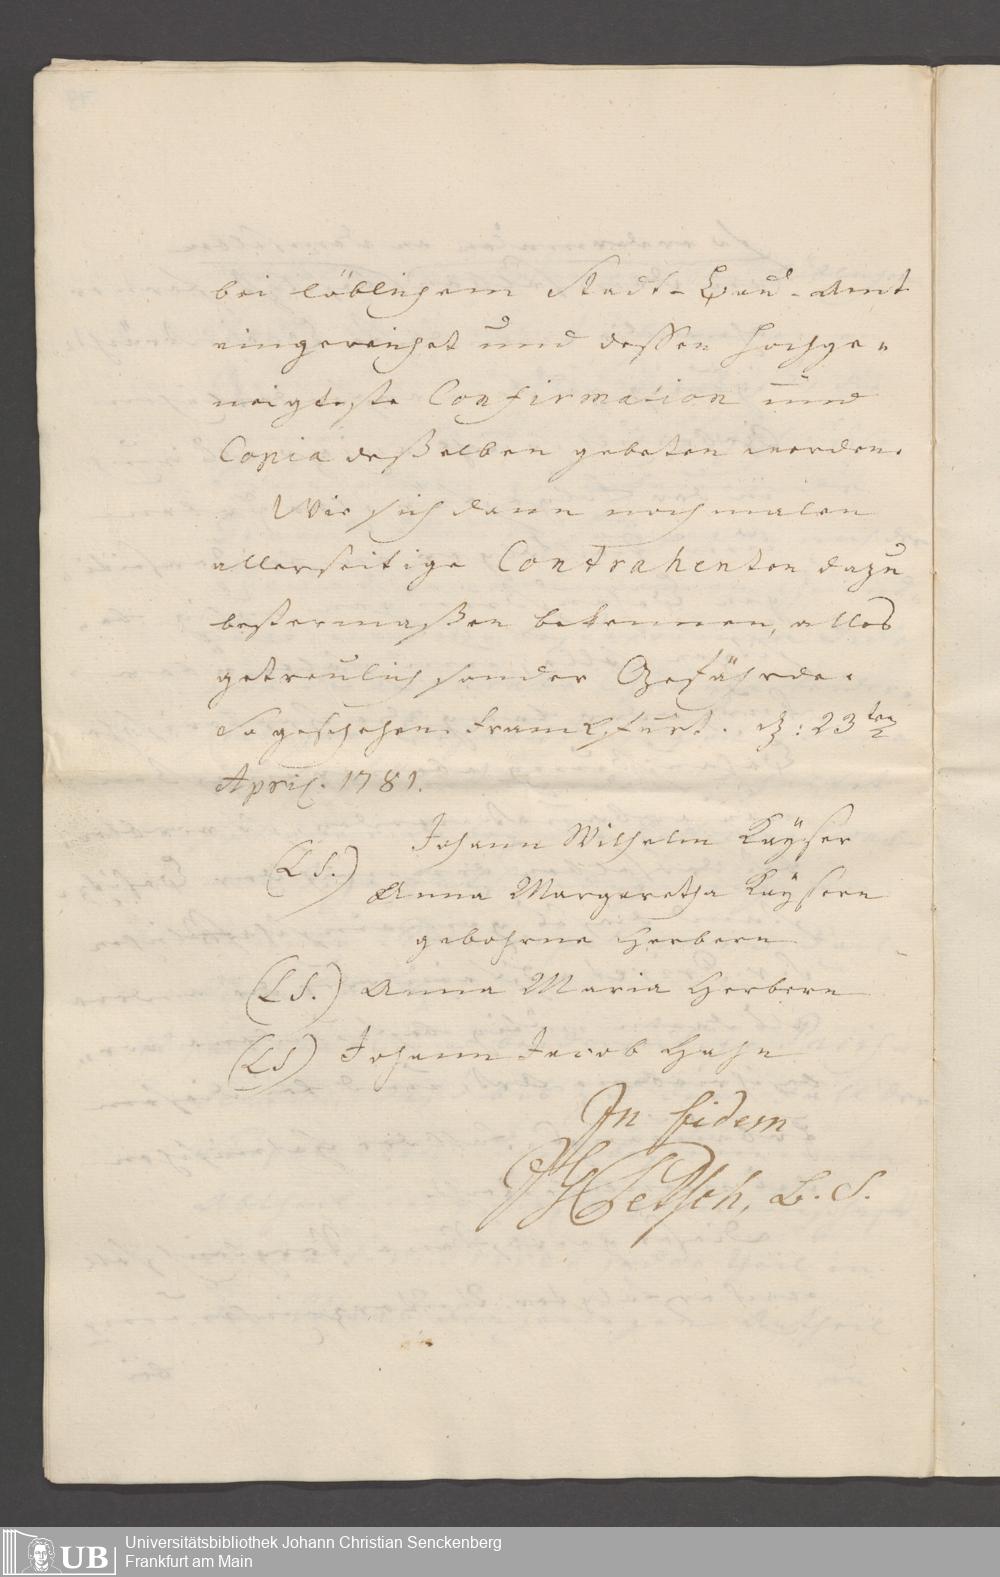 bei löblichem Stadt-Bau-Amt
eingereichet und dessen hochge-
neigteste Confirmation und
Copia deßelben gebeten werden.
Wie sich dann nochmalen
allerseitige Contrahenten dazu
bestermaßen bekennen, alles
getreulich sonder Gefährde.
So geschehen Franckfurt. d: 23ten
April. 1781.
Johann Wilhelm Kayser
(L S.)
Anna Margaretha Kaysern
gebohrne Herbern
(L S.) Anna Maria Herbern
(L S) Johann Jacob Hahn
In fidem
Universitätsbibliothek Johann Christian Senckenberg
Frankfurt am Main
UB